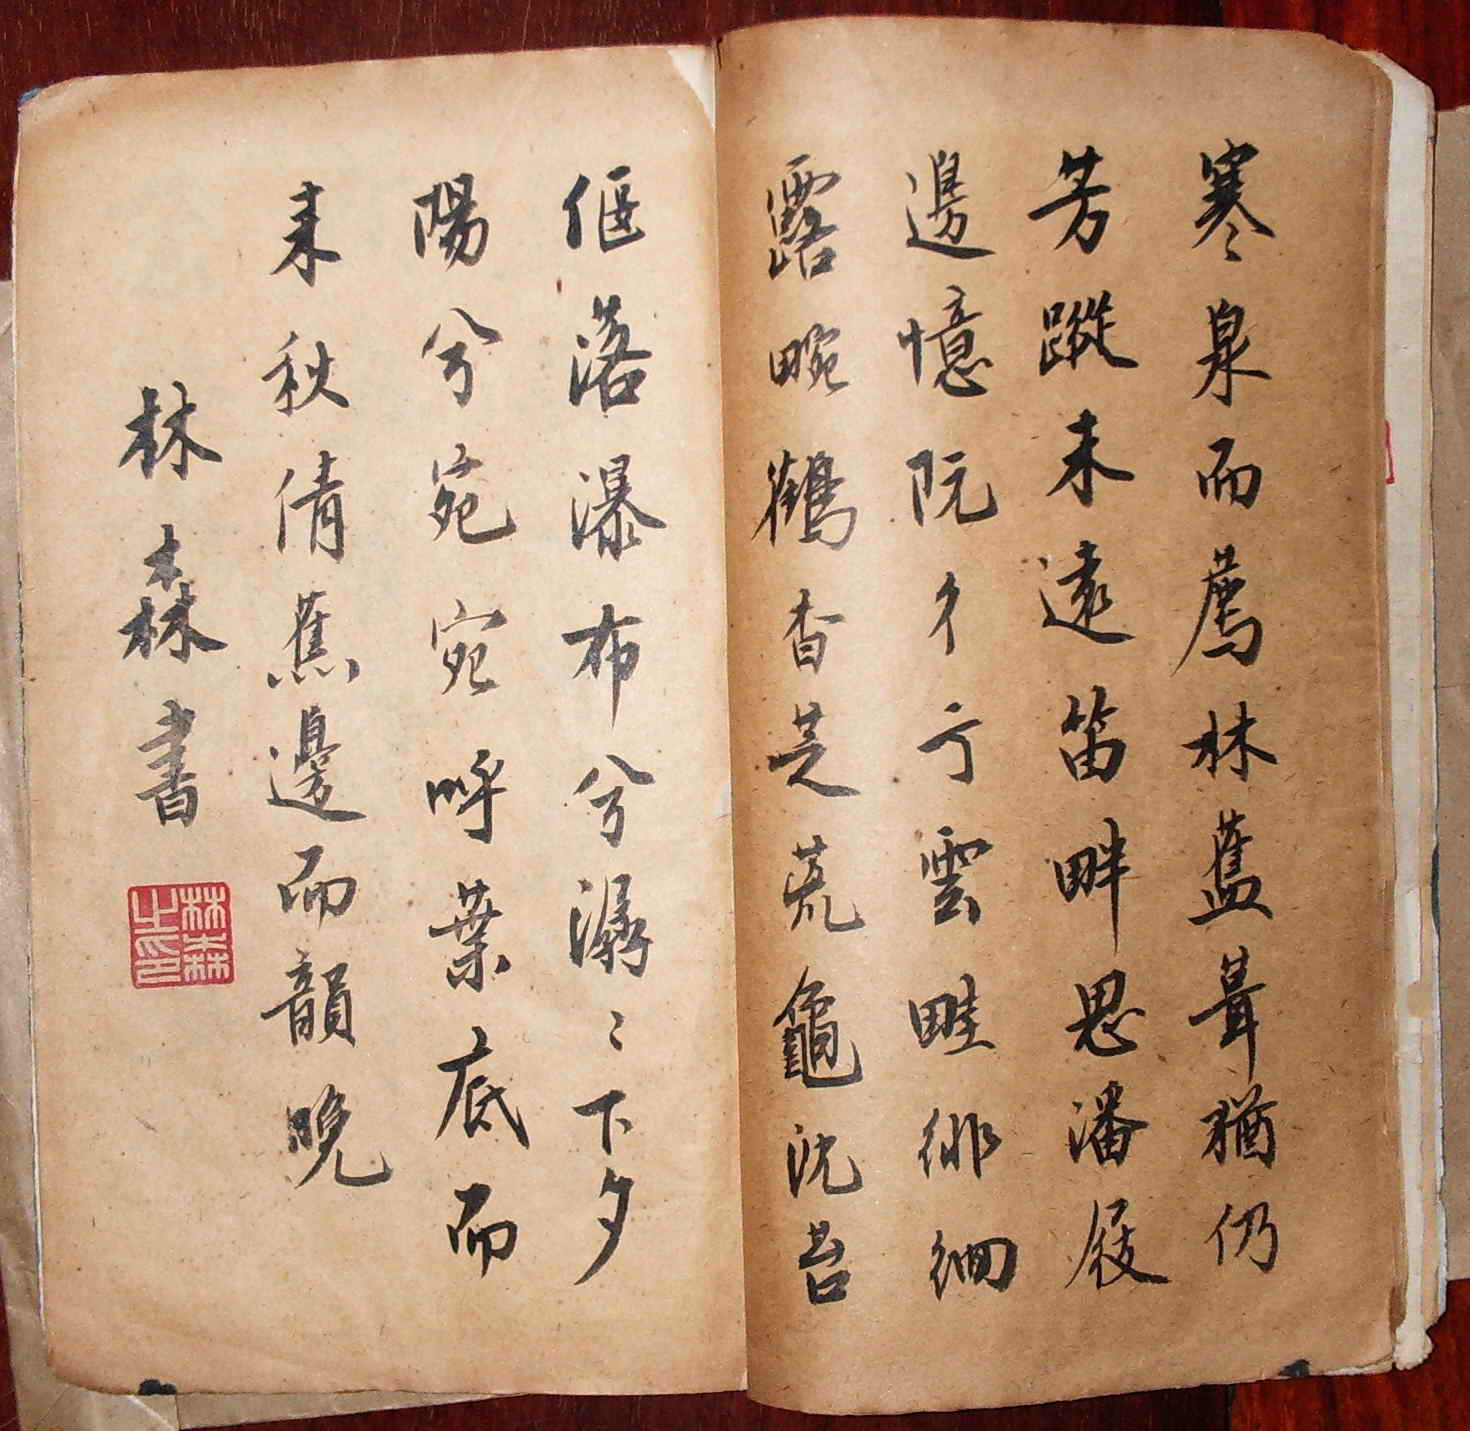 寒泉而薦林藍葺猶仍
芳蹤未遠笛畔思潘屐
邊憶阮彳亍雲畦徘徊
露畹鶴杳芝荒龜沈苔
偃落瀑布兮潺〻下夕
陽兮宛宛呼葉底而
来秋倩蕉邊而韻晚
林森書
林森之印